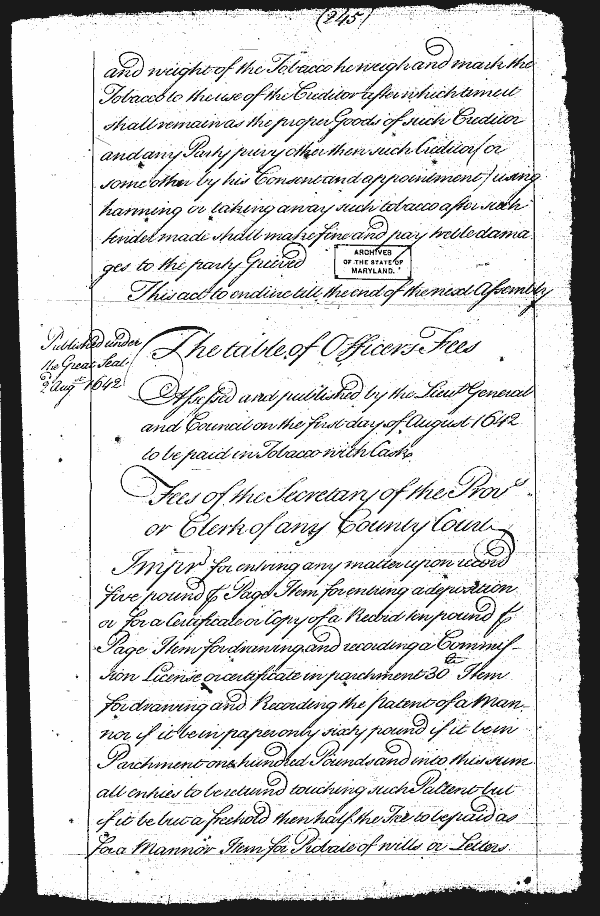 (245)
and weight of the Tobacco he weigh and mark the
Tobacco to the use of the Creditor after which tender it
shall remain as the proper Goods of such Creditor
and any Party privy other then such Creditor (or
some other by his Consent and appointment) using
harming or taking away such tobacco after such
tender made shall make fine and pay treble dama
ges to the party Grieved
ARCHIVES
OF THE STATE OF
MARYLAND.
This act to endure till the end of the next Assembly
Published under
the Great Seal
2d Augst 1642
The table of Officers Fees
Assessed and published by the Lieut General
and Council on the first day of August 1642
to be paid in Tobacco with Cask
Fees of the Secretary of the Prov
or Clerk of any County Court
Impr for entring any matter upon record
five pound Page Item for entring a deposition
or for a Certificate or Copy of a Record ten pound
Page Item for drawing and recording a Commis-
sion License or certificate in parchment 30 Item
for drawing and Recording the patent of a Man-
nor if it be in paper only sixty pound if it be in
Parchment one hundred Pounds and into this sum
all entries to be returnd touching such Pattent but
if it be but a freehold then half the Fee to be paid as
for a Mannor Item for Probate of wills or Letters